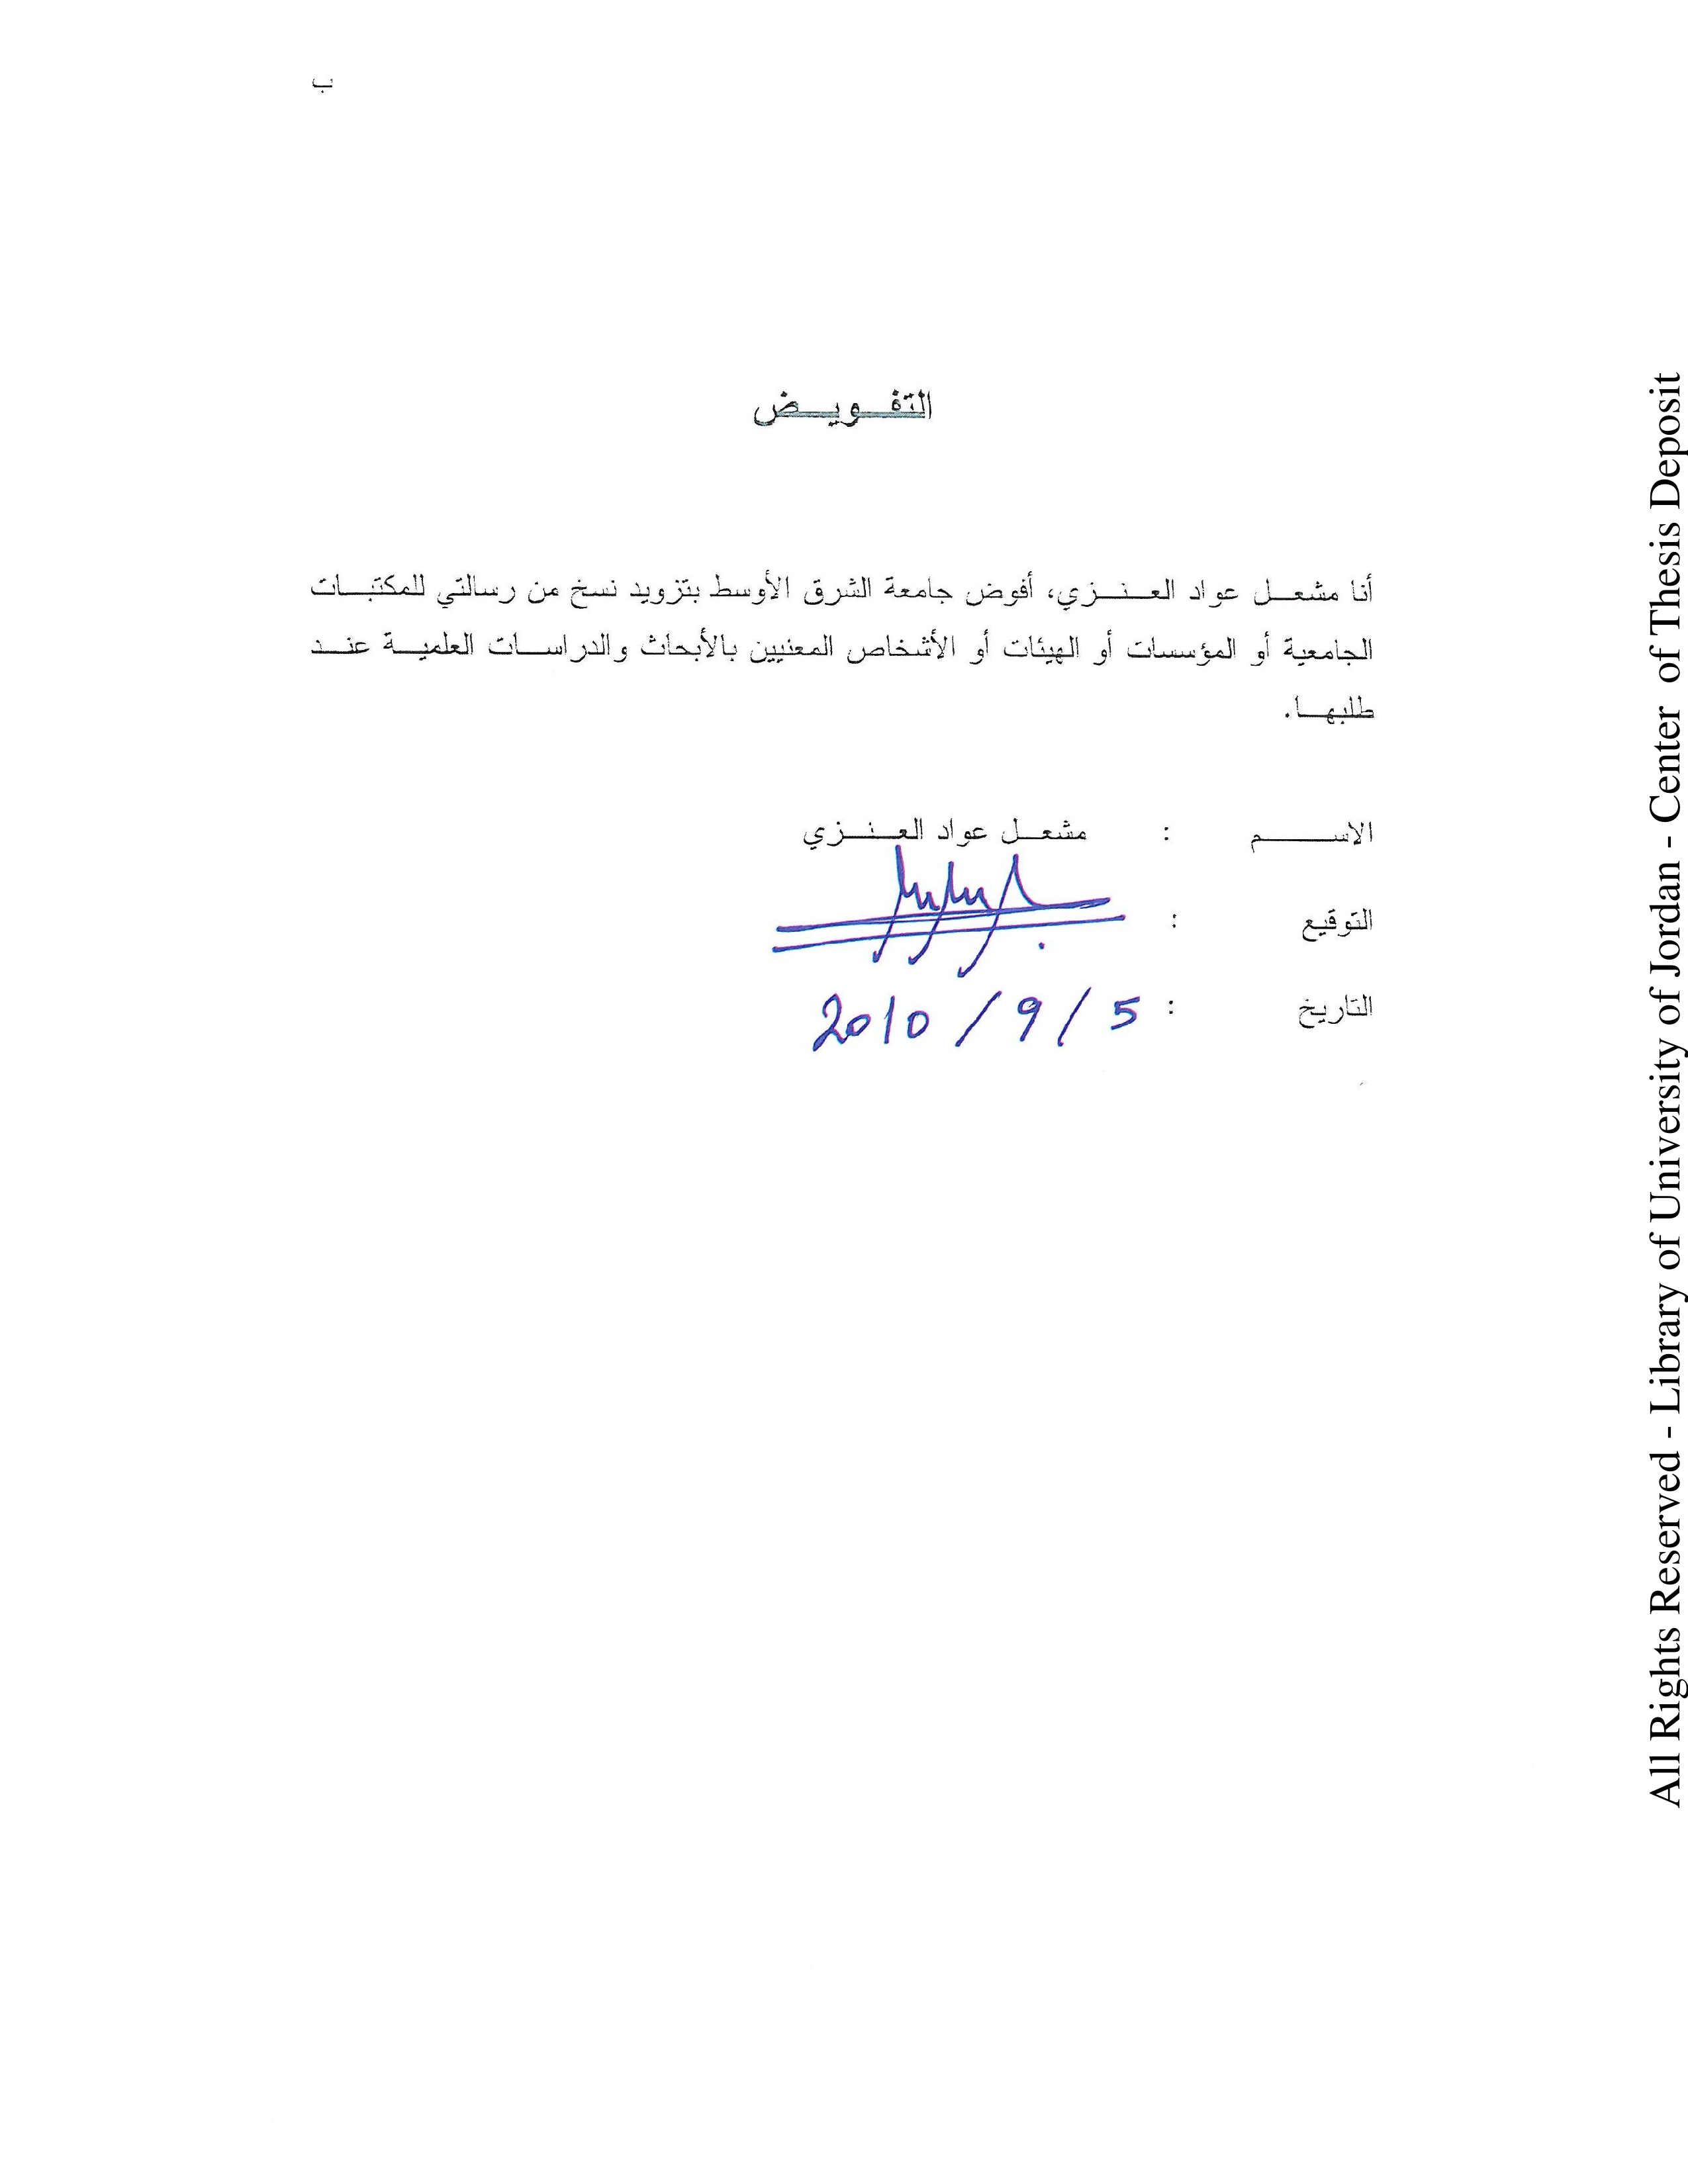 ب
التفويض
أنا مشعل عواد العنزي، أفوض جامعة الشرق الأوسط بتزويد نسخ من رسالتي للمكتبات
الجامعية أو المؤسسات أو الهيئات أو الأشخاص المعنيين بالأبحاث والدراسات العلمية عند
طلبها.
الاسم : مشعل عواد العنزي
التوقيع :
التاريخ : 5 / 9 / 2010
All Rights Reserved - Library of University of Jordan - Center of Thesis Deposit